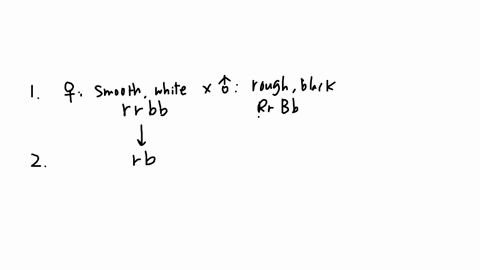 1. ♀: smooth, white × ♂: rough, black
rrbb RrBb
↓
2. rb